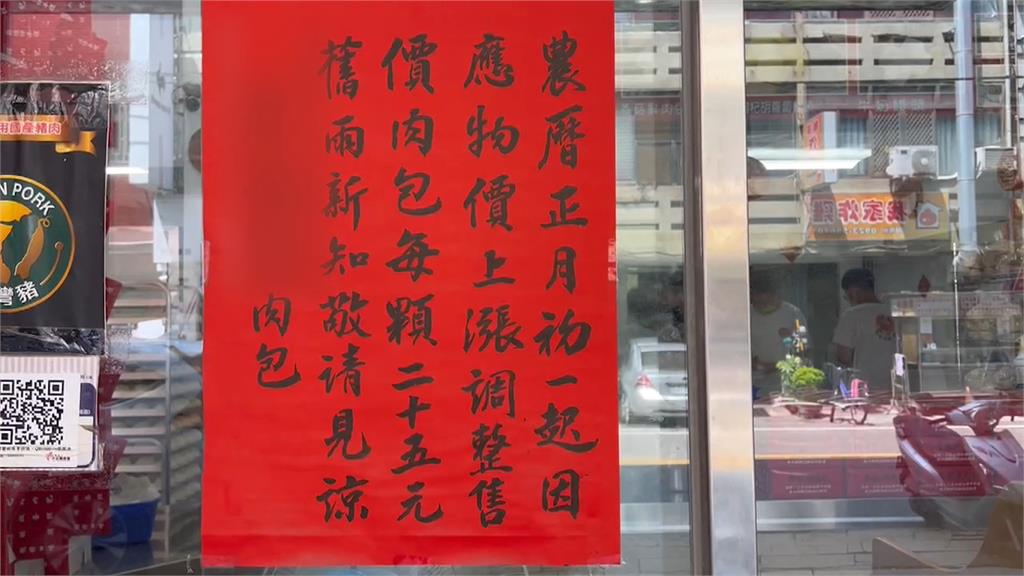 農曆正月初一起因
應物價上漲調整售
價肉包每顆二十五元
舊雨新知敬請見諒
肉包
用國產豬肉
N PORK
灣豬
家炸雞